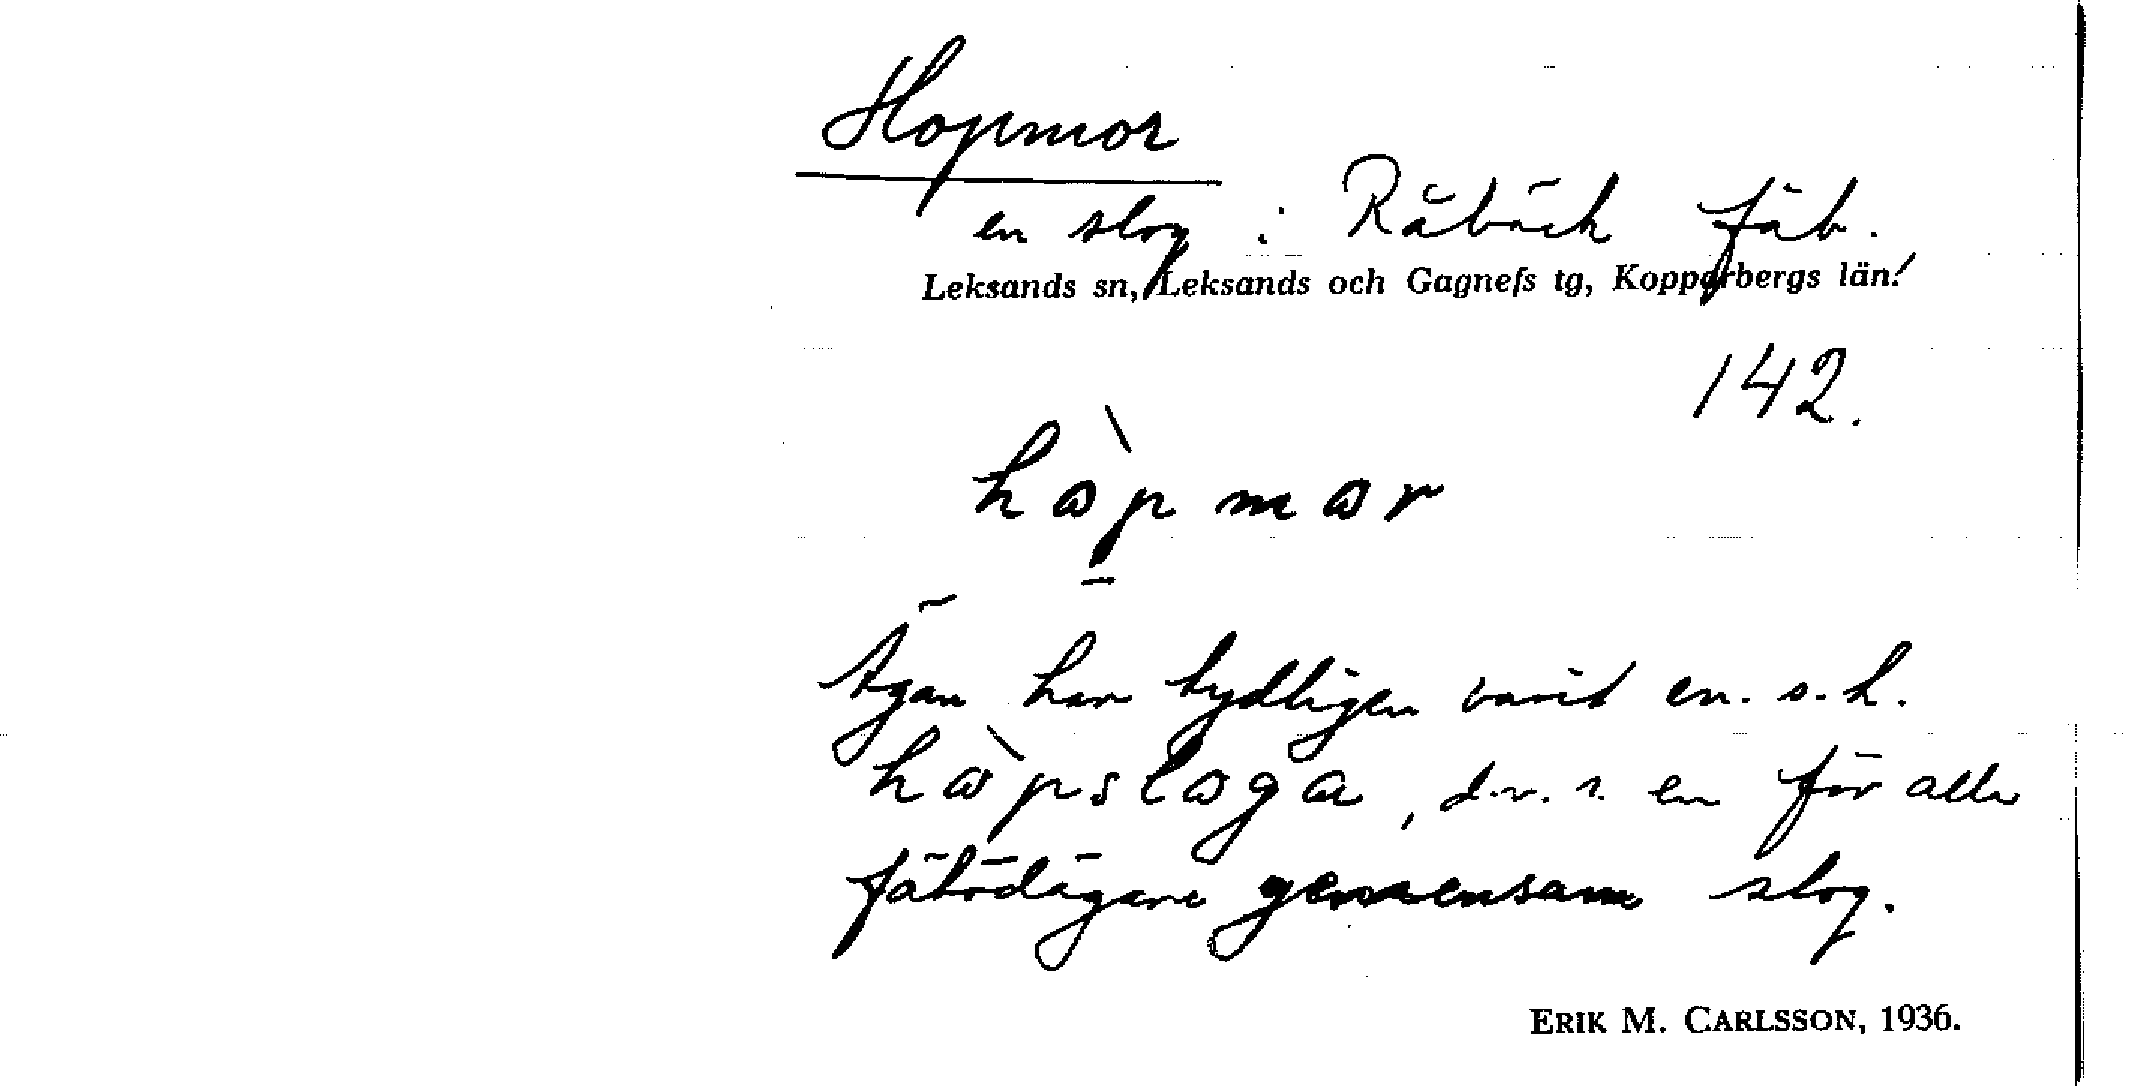 Hopmor
en slog i Råbäck fäb.
Leksands sn, Leksands och Gagnefs tg, Kopparbergs län.
142.
hòpmor
Ägan har tydligen varit en s.k.
hòpsloga, d.v.s. en för alla
fäbodägare gemensam slog.
ERIK M. CARLSSON, 1936.